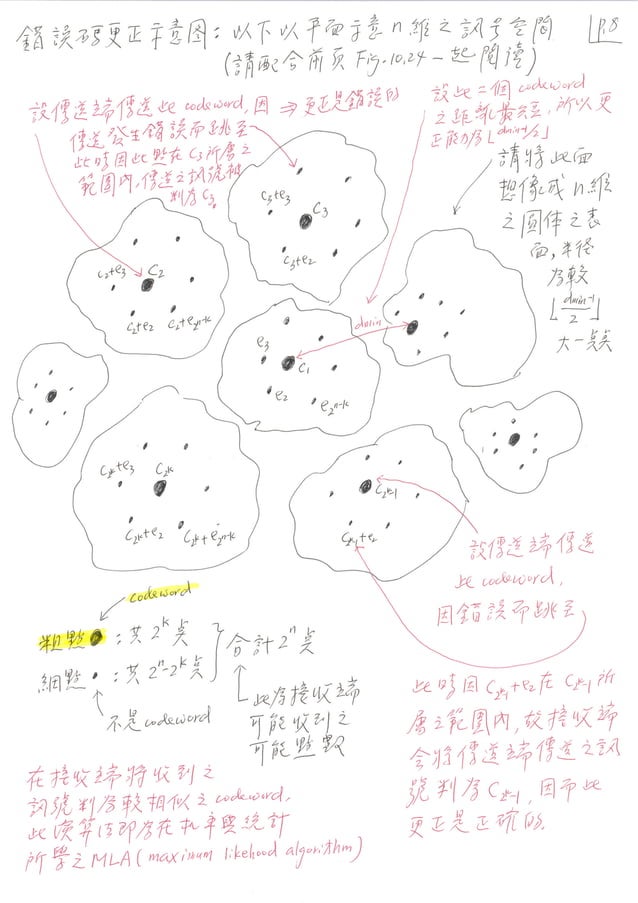 錯誤碼更正示意圖：以下以平面示意n維之訊号空間
(請配合前頁Fig.10.24一起閱讀)
P.8
設傳送端傳送此codeword,因
傳送發生錯誤而跳至
此時因此點在C3所屬之
範圍內,傳送之訊號被
判為C3
⇒更正是錯誤的
設此二個codeword
之距離最短,所以更
正能力為⌊dmin-1/2⌋
請將此面
想像成n維
之圓体之表
面,半徑
為較
⌊dmin-1/2⌋
大一點
C3+e3
C3
C3+e2
C2+e3
C2
C2+e2
C2+e2n-k
dmin
e3
C1
e2
e2n-k
C2k+e3
C2k
C2k+e2
C2k+e2n-k
C2k-1
C2k-1+e2
設傳送端傳送
此codeword,
因錯誤而跳至
codeword
粗點●：共2^k點
細點•：共2^n-2^k點
合計2^n點
不是codeword
此為接收端
可能收到之
可能點數
此時因C2k-1+e2在C2k-1所
屬之範圍內,故接收端
會將傳送端傳送之訊
號判為C2k-1,因而此
更正是正確的.
在接收端將收到之
訊號判為較相似之codeword,
此演算法即為在机率與統計
所學之MLA(maximum likehood algorithm)